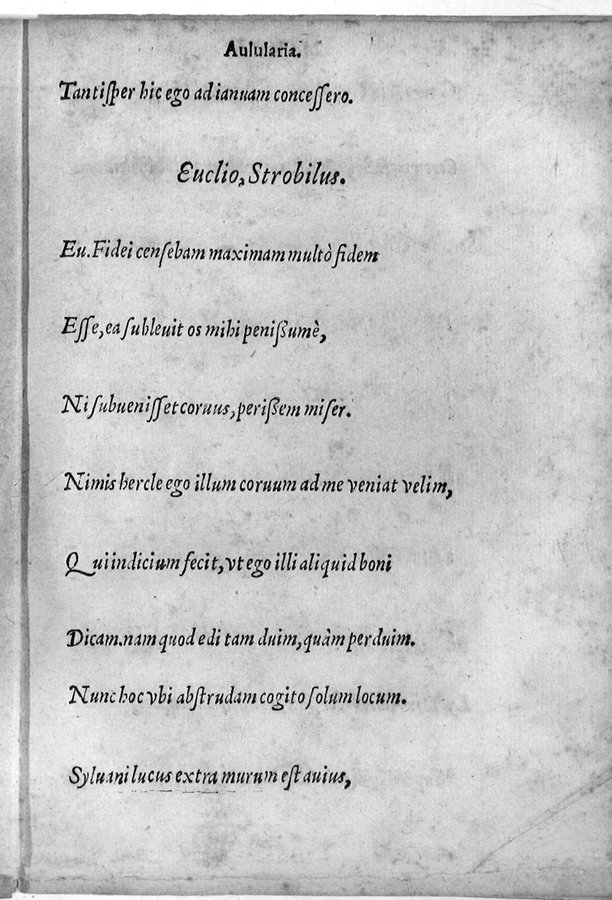 Aulularia.
Tantiſper hic ego ad ianuam conceſſero.
Euclio, Strobilus.
Eu. Fidei cenſebam maximam multò fidem
Eſſe, ea ſubleuit os mihi penißumè,
Ni ſubueniſſet coruus, perißem miſer.
Nimis hercle ego illum coruum ad me veniat velim,
Qui indicium fecit, vt ego illi aliquid boni
Dicam. nam quod edi tam duim, quàm perduim.
Nunc hoc vbi abſtrudam cogito ſolum locum.
Syluani lucus extra murum eſt auius,